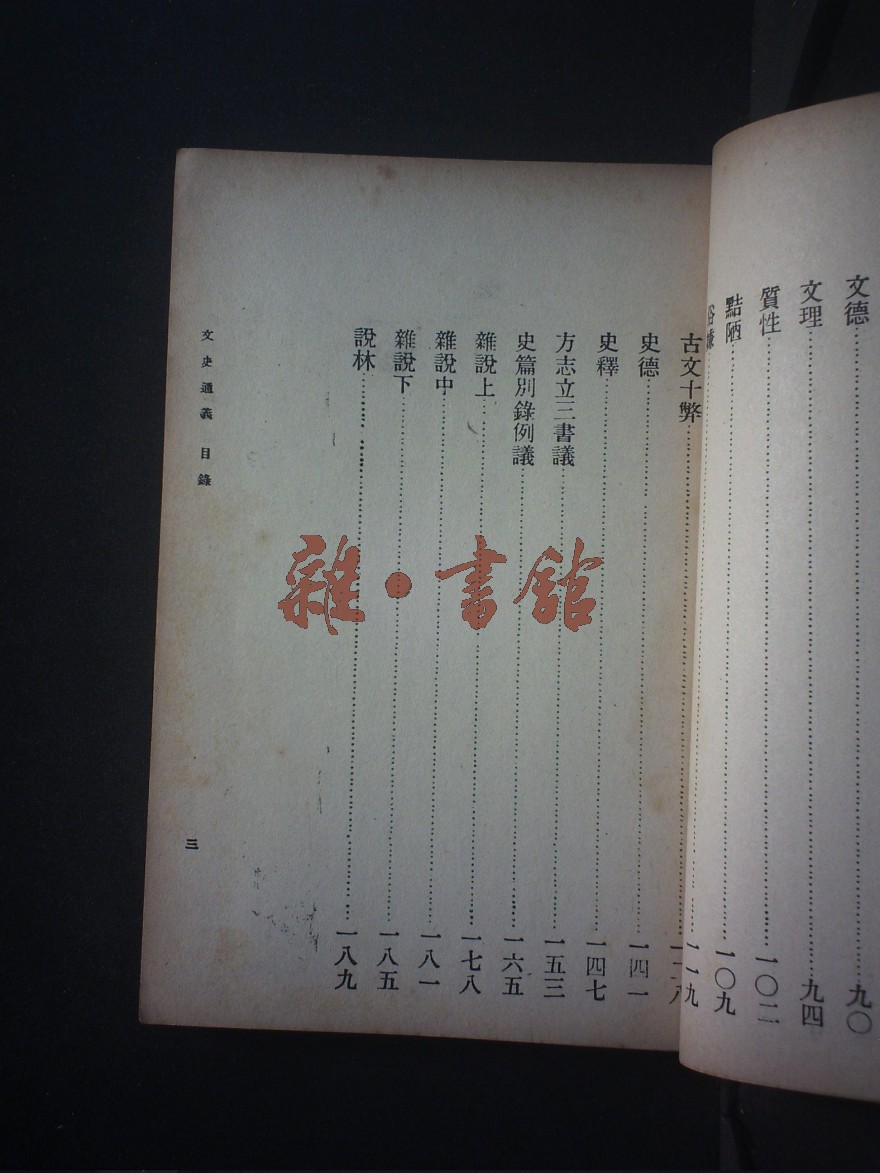 文德……九〇
文理……九四
質性……一〇二
黠陋……一〇九
俗嫌……一一九
古文十弊
史德……一四一
史釋……一四七
方志立三書議……一五三
史篇別錄例議……一六五
雜說上……一七八
雜說中……一八一
雜說下……一八五
說林……一八九
文史通義 目錄
三
雜·書館